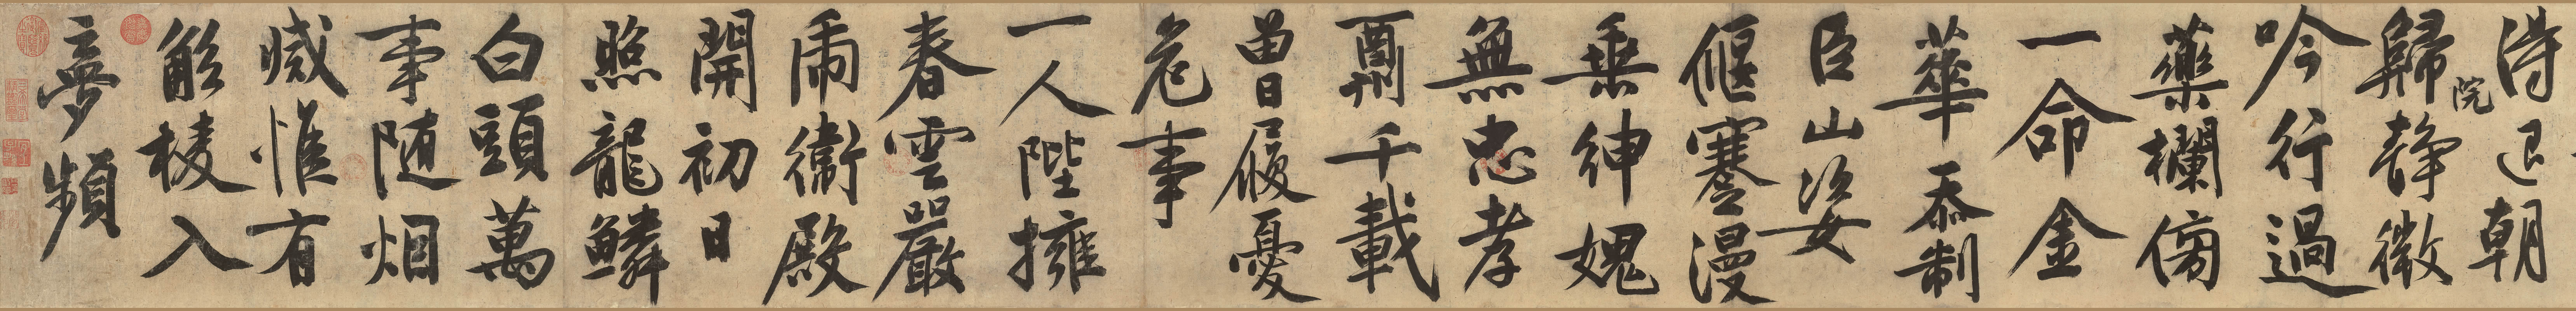 退朝
院
歸静微
吟行過
藥欄傍
一命金
華忝制
臣山姿
偃蹇漫
垂紳媿
無忠孝
千載
曾履憂
危事
一人陛擁
春雲嚴
虎衛殿
開初日
照龍鱗
白頭萬
事随烟
滅惟有
觚稜入
夢頻